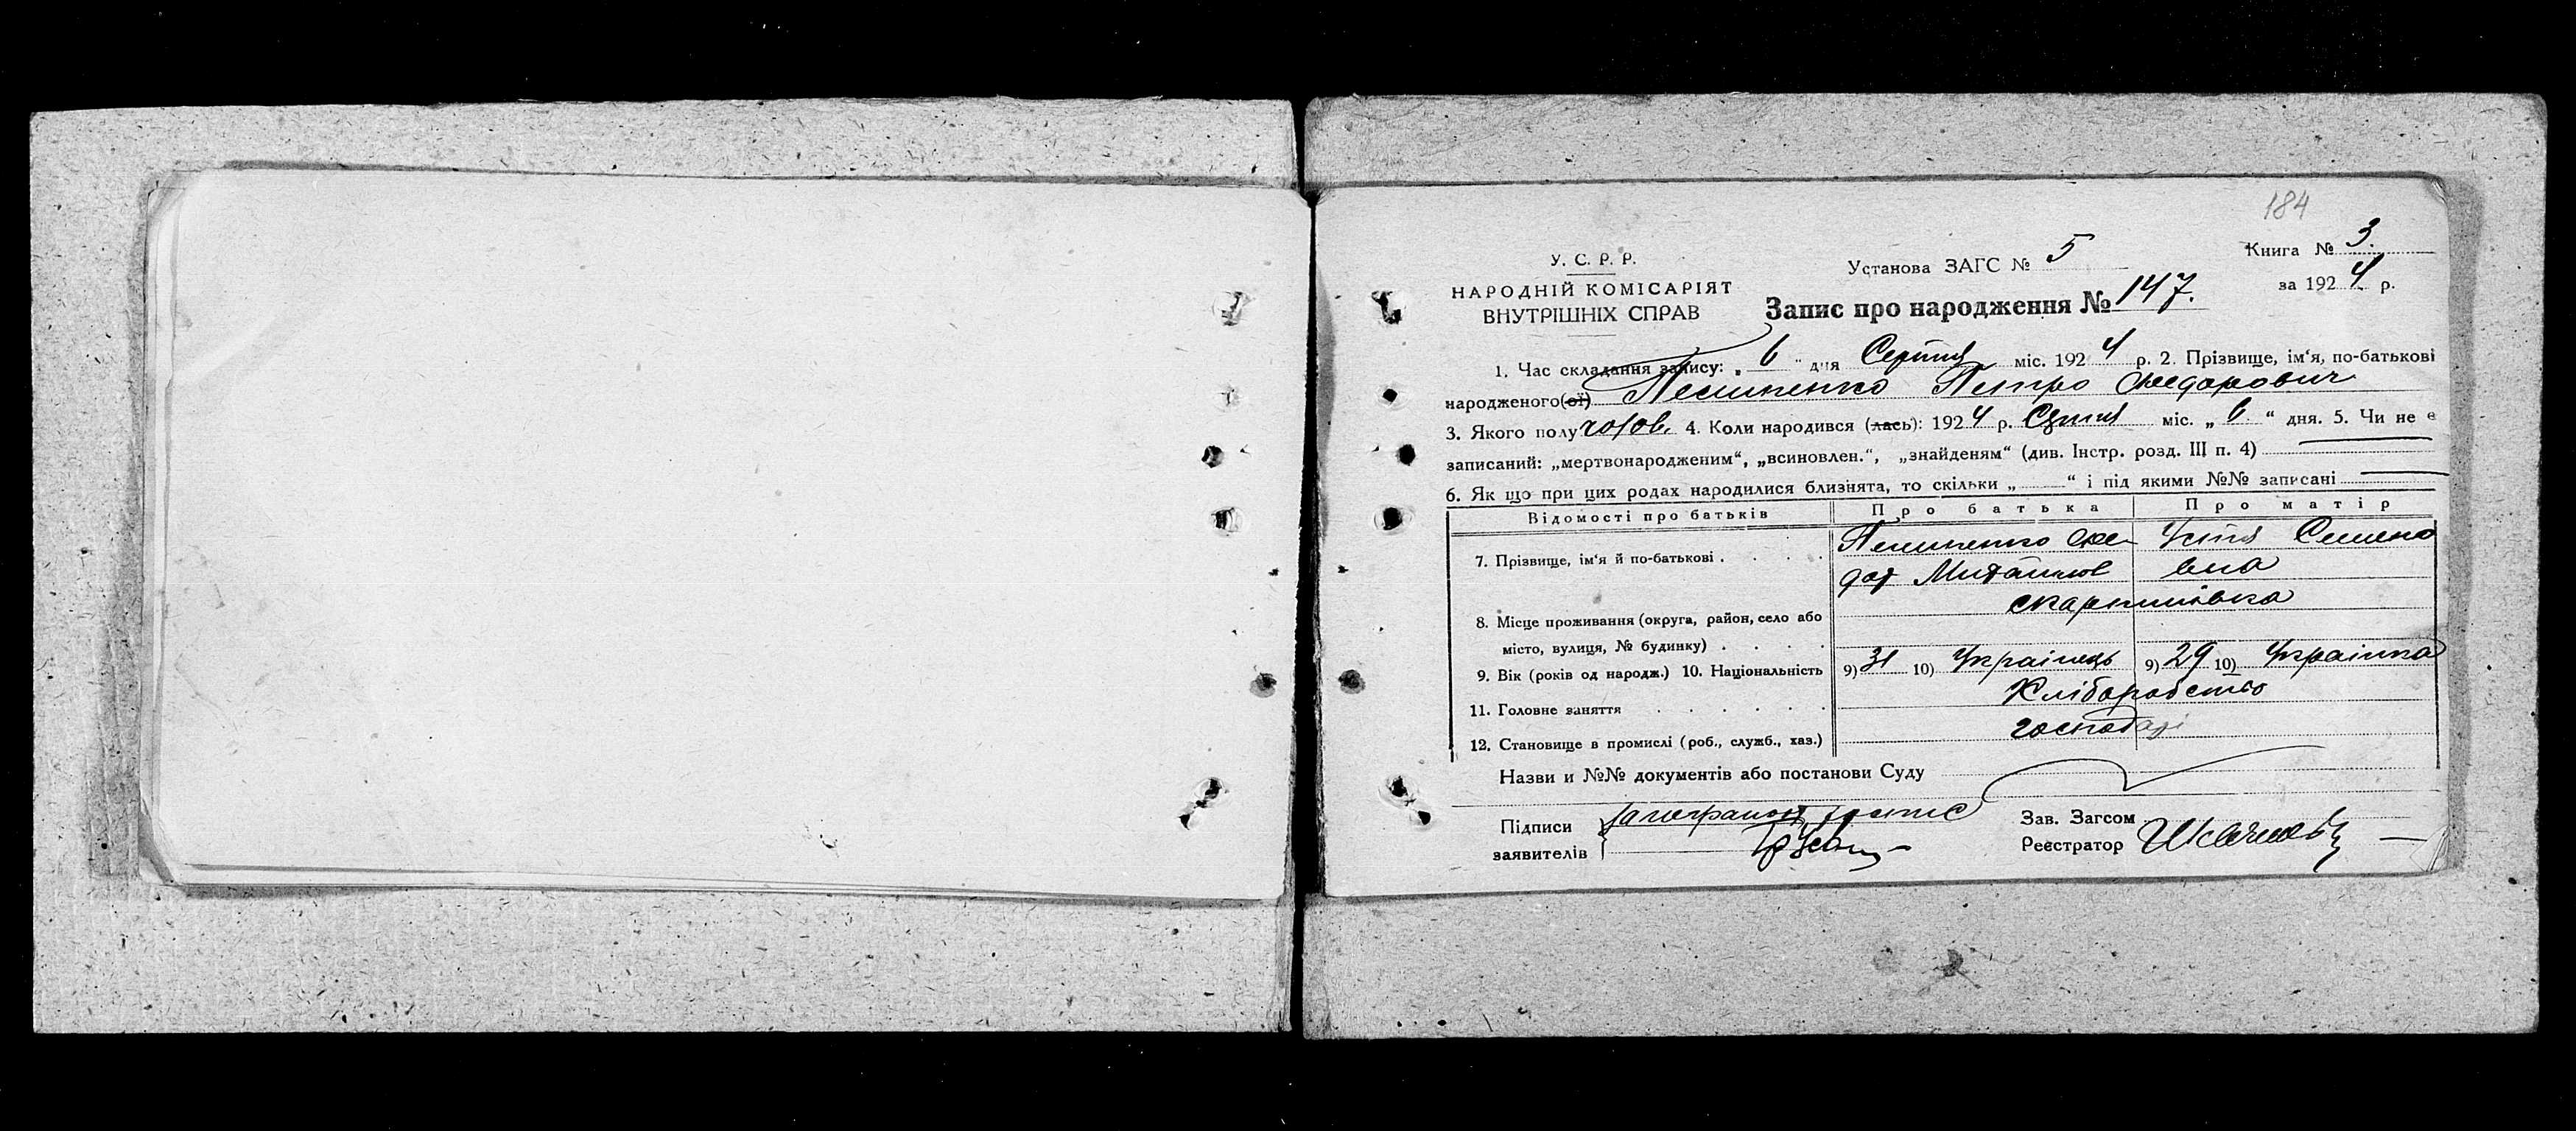 184
У. С. Р. Р.
НАРОДНІЙ КОМІСАРІЯТ
ВНУТРІШНІХ СПРАВ
Установа ЗАГС № 5
Книга № 3.
за 1924 р.
Запис про народження № 147.
1. Час складання запису: „ 6 " дня Серпня міс. 1924 р. 2. Прізвище, ім'я, по-батькові
народженого(ої) Петро Федорович
3. Якого полу чолов. 4. Коли народився (лась): 1924 р. Серпня міс. „ 6 " дня. 5. Чи не є
записаний: „мертвонародженим“, „всиновлен.“, „знайденям“ (див. Інстр. розд. III п. 4)
6. Як що при цих родах народилися близнята, то скільки „ “ і під якими №№ записані
Відомості про батьків Про батька Про матір
7. Прізвище, ім'я й по-батькові . . . . Фе- Устя Семено
дор Михайлов вна
8. Місце проживання (округа, район, село або
місто, вулиця, № будинку) . . . .
9. Вік (років од народж.) 10. Національність 9) 31 10) Українець 9) 29 10) Українка
11. Головне заняття . . . . . . Хліборобство
12. Становище в промислі (роб., служб., хаз.) господарі
Назви и №№ документів або постанови Суду
Підписи
заявителів
Зав. Загсом
Реєстратор